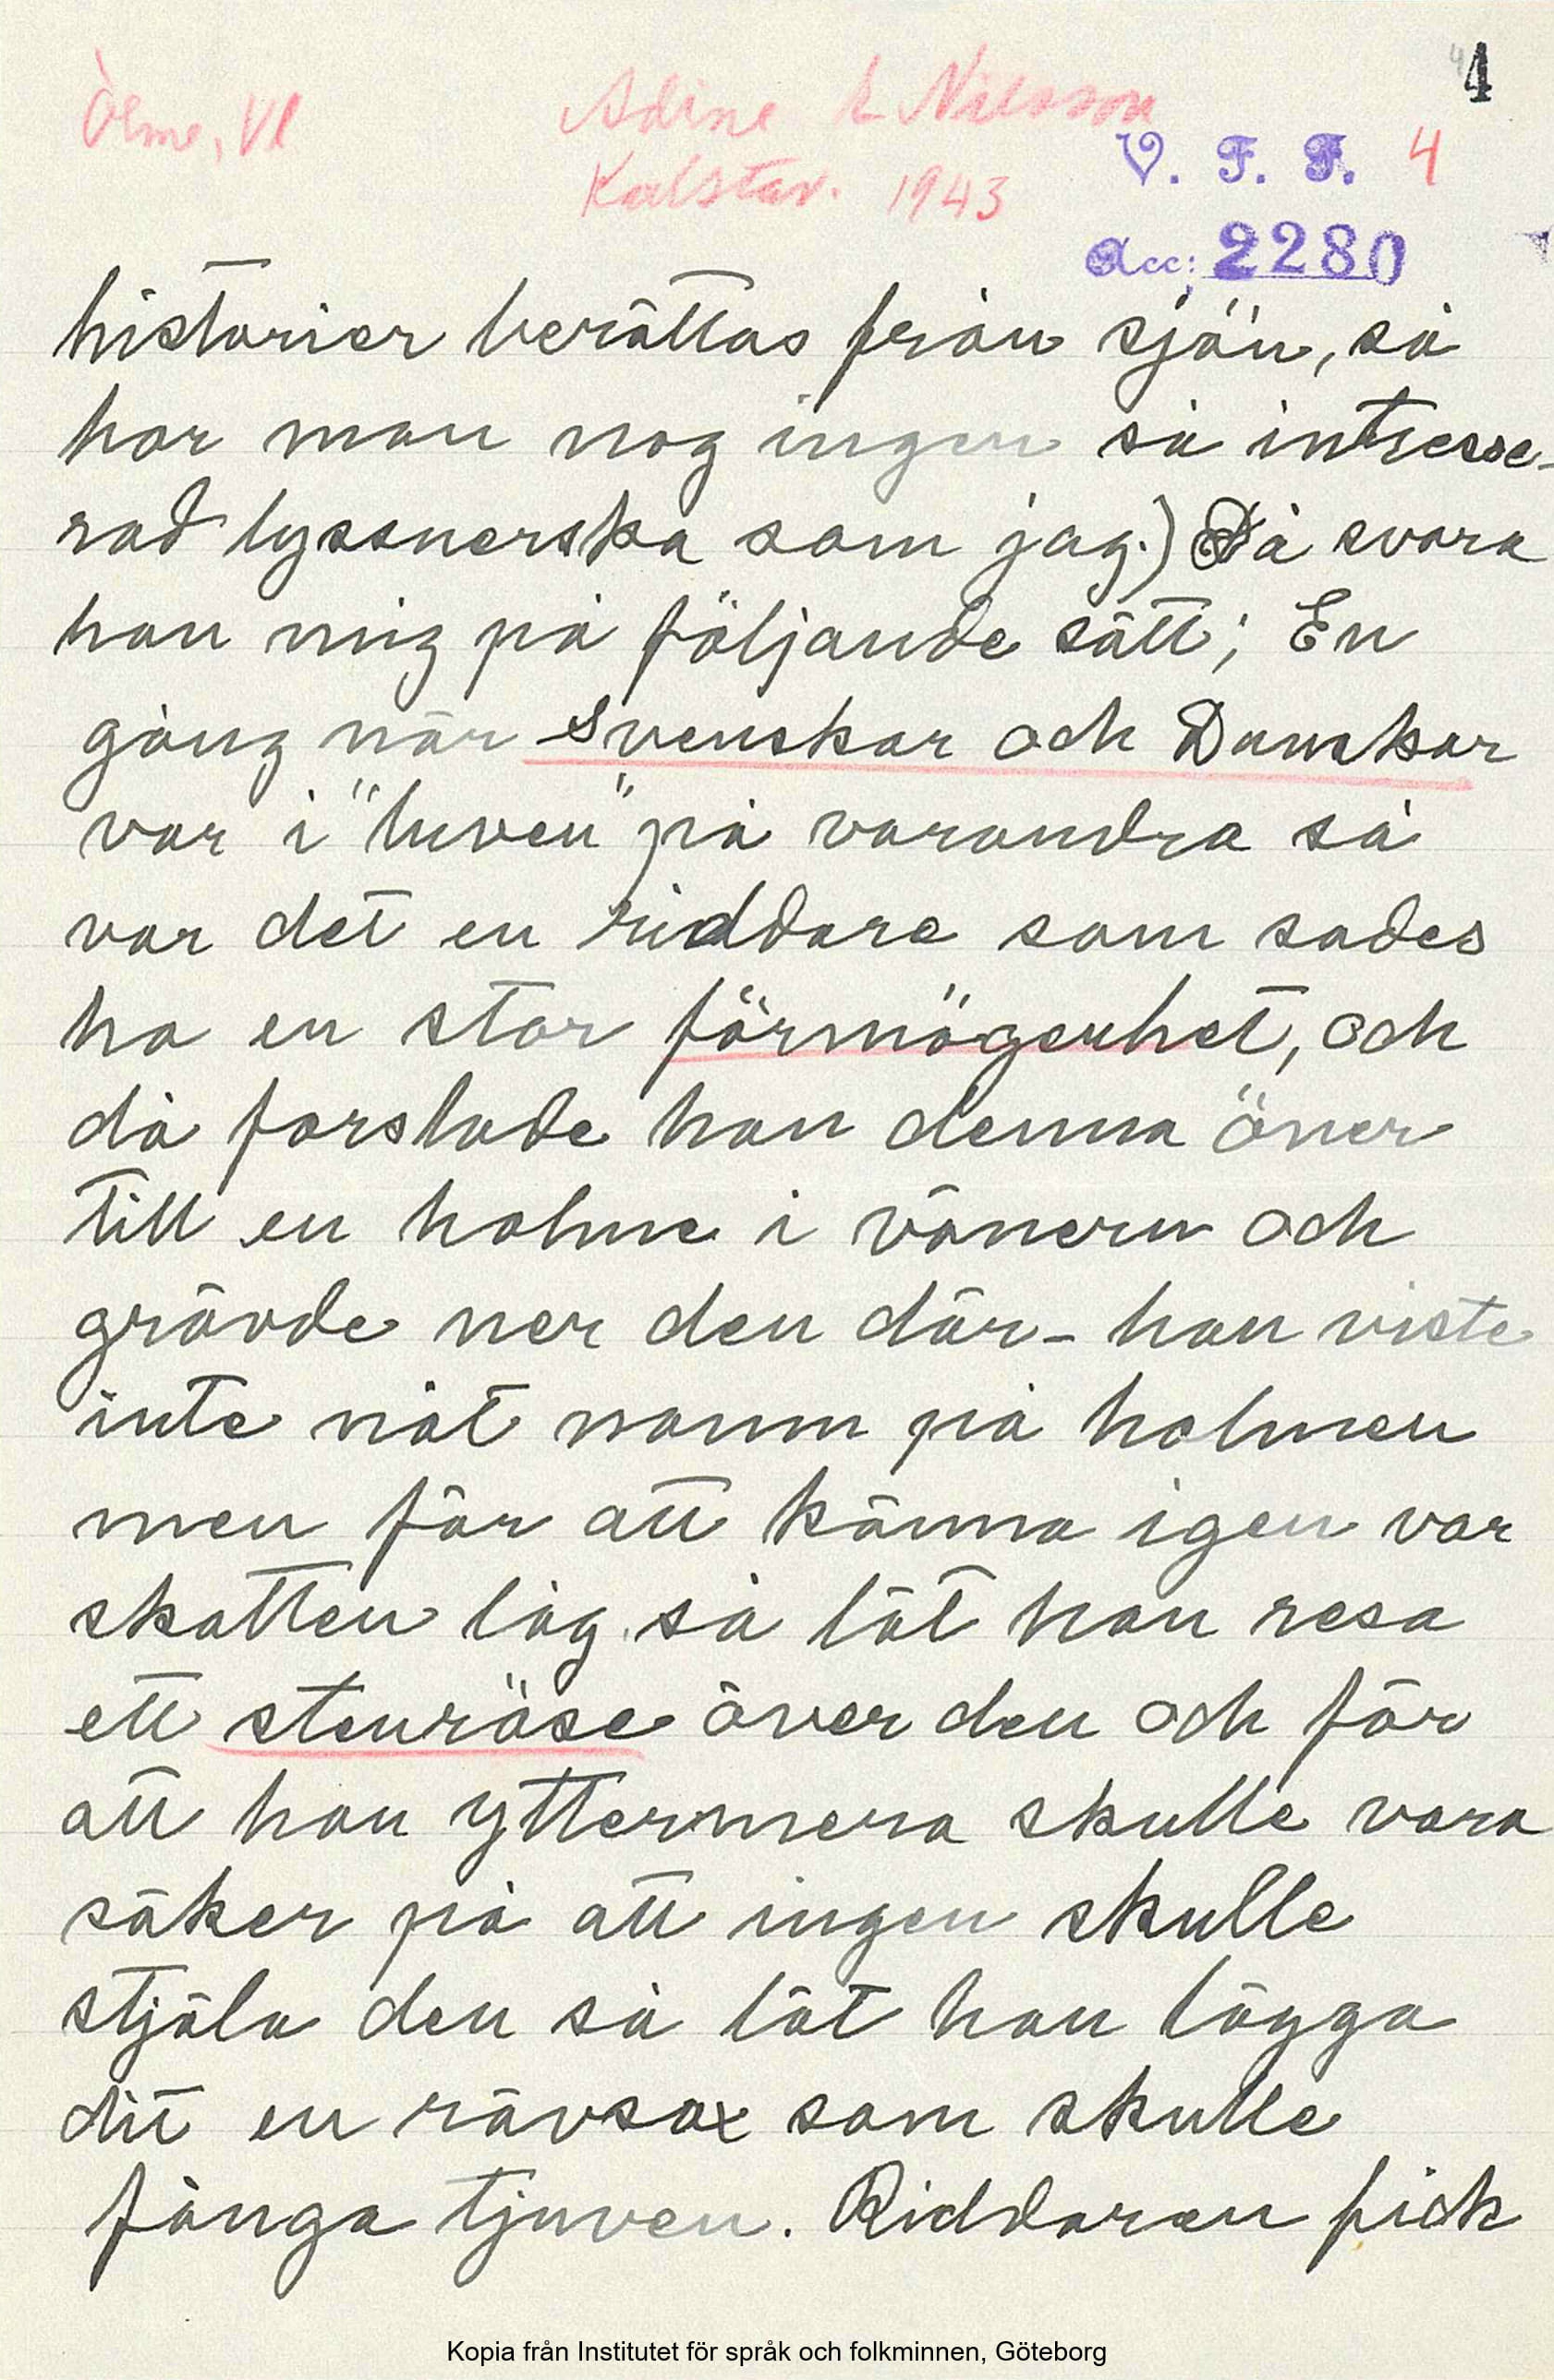 4
Ölme, Vl
Adine L Nilsson
V. F. F. 4
Kalstav. 1943
Acc; 2280
historier berättas från sjön, så
har man nog ingen så intresse-
rad lyssnerska som jag.) Då svara
han mig på följande sätt; En
gång när svenskar och Danskar
var i "luven" på varandra så
var det en riddare som sades
ha en stor förmögenhet, och
då forslade han denna över
till en holme i vänern och
grävde ner den där - han viste
inte nåt namn på holmen
men för att känna igen var
skatten låg så lät han resa
ett stenröse över den och för
att han yttermera skulle vara
säker på att ingen skulle
stjäla den så lät han lägga
dit en rävsax som skulle
fånga tjuven. Riddaren fick
Kopia från Institutet för språk och folkminnen, Göteborg